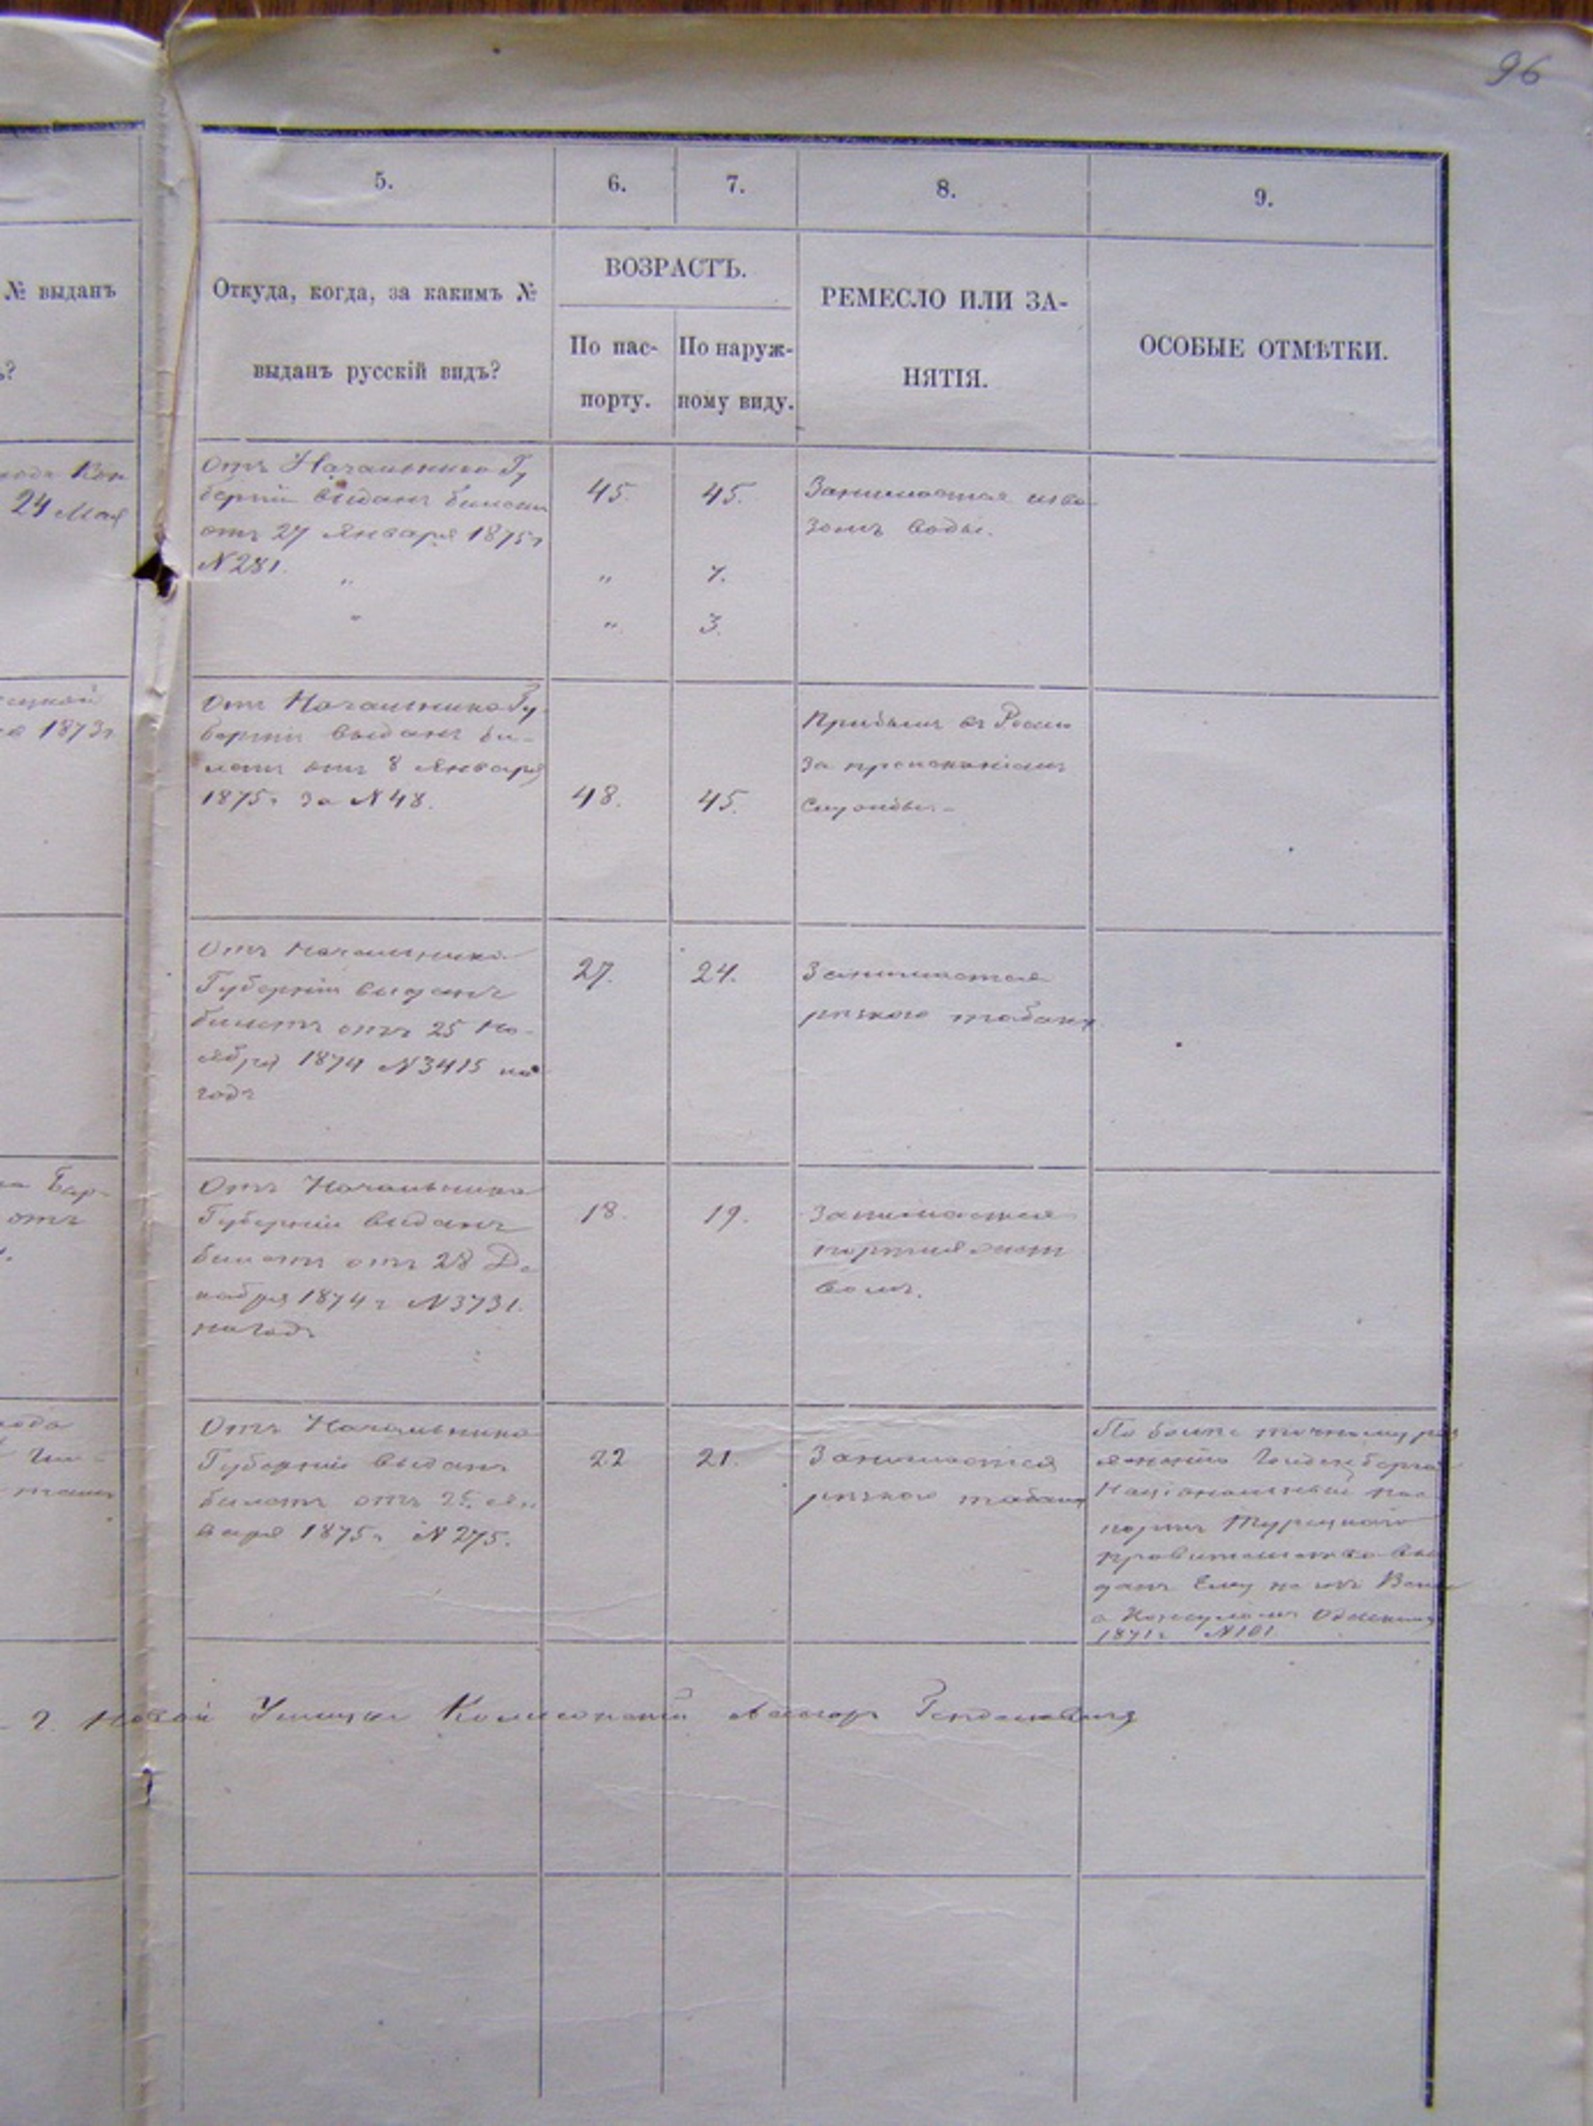 96
5.
6.
7.
8.
9.
№ выданъ
ъ?
Откуда, когда, за какимъ №
выданъ русскій видъ?
ВОЗРАСТЪ.
По пас-
порту.
По наруж-
ному виду.
РЕМЕСЛО ИЛИ ЗА-
НЯТІЯ.
ОСОБЫЕ ОТМѢТКИ.
24 Мая
Отъ Начальника Гу
берніи выданъ билетъ
отъ 27 Января 1875 г
N 281.
"
"
45.
"
"
45.
7.
3.
Занимается изво
зомъ воды.
1873 г
Отъ Начальника Гу-
берніи выданъ би-
летъ отъ 8 Января
1875 г за N 48.
48.
45.
Прибылъ въ Россію
за
службы. -
Отъ Начальника
Губерніи выданъ
билетъ отъ 25 Но-
ября 1874 N 3415 на
годъ
27.
24.
Занимается
рѣзкою табаку
Бар-
отъ
Отъ Начальника
Губерніи выданъ
билетъ отъ 28 Де
кабря 1874 г N 3731.
на годъ
18.
19.
Занимается
портняжест
вомъ.
Отъ Начальника
Губерніи выданъ
билетъ отъ 25 Ян
варя 1875 г N 275.
22
21.
Занимается
рѣзкою табаку
По болѣе точному
Національный пас
портъ Турецкаго
правительства вы
данъ ему
Консуломъ Одесскимъ
1871 г N 101
г. Новой Ушицы